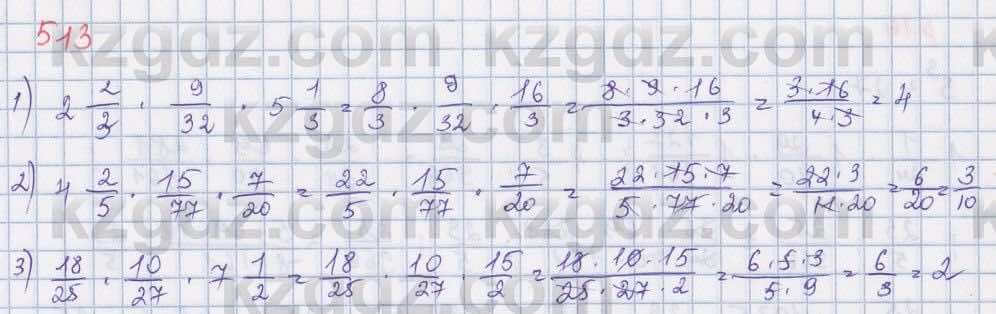 513
kzgdz.com kzgdz.com
1) 2 2/3 · 9/32 · 5 1/3 = 8/3 · 9/32 · 16/3 = 8·9·16/3·32·3 = 3·16/4·3 = 4
2) 4 2/5 · 15/77 · 7/20 = 22/5 · 15/77 · 7/20 = 22·15·7/5·77·20 = 22·3/11·20 = 6/20 = 3/10
3) 18/25 · 10/27 · 7 1/2 = 18/25 · 10/27 · 15/2 = 18·10·15/25·27·2 = 6·5·3/5·9 = 6/3 = 2